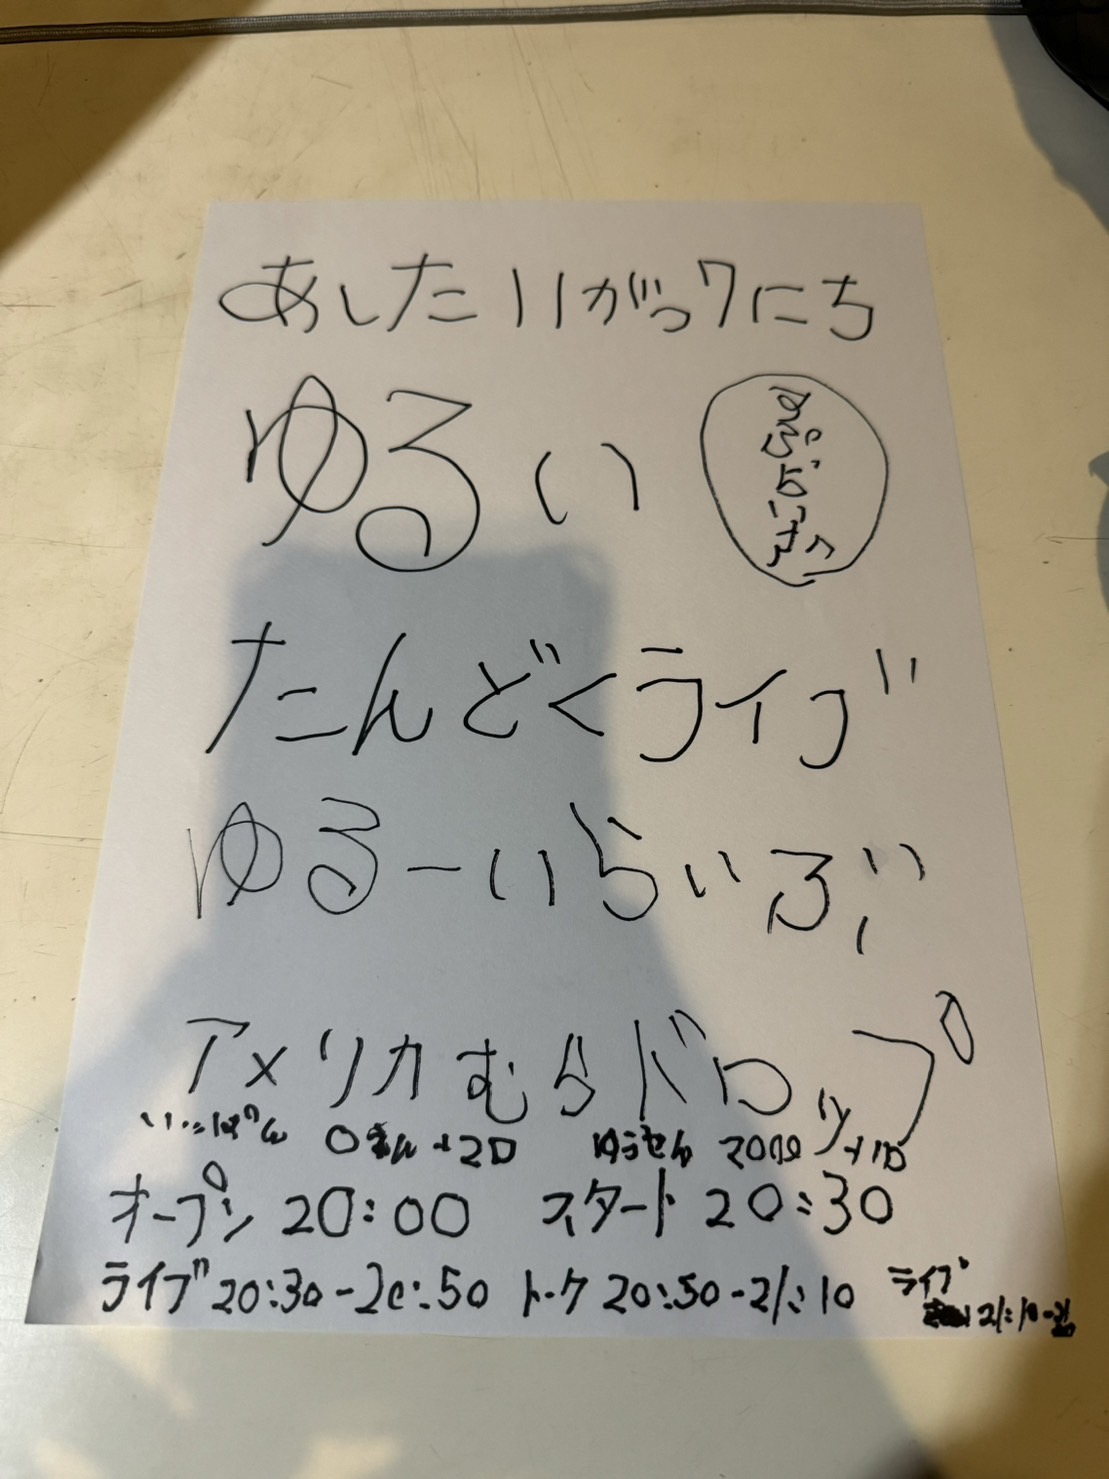 あした11がつ7にち
ゆるい
たんどくライブ
ゆるーいらいぶ
アメリカむらドロップ
いっぱん 0えん+2D ゆうせん 2000 +1D
オープン 20:00 スタート 20:30
ライブ 20:30-20:50 トーク 20:50-21:10 ライブ
21:10-